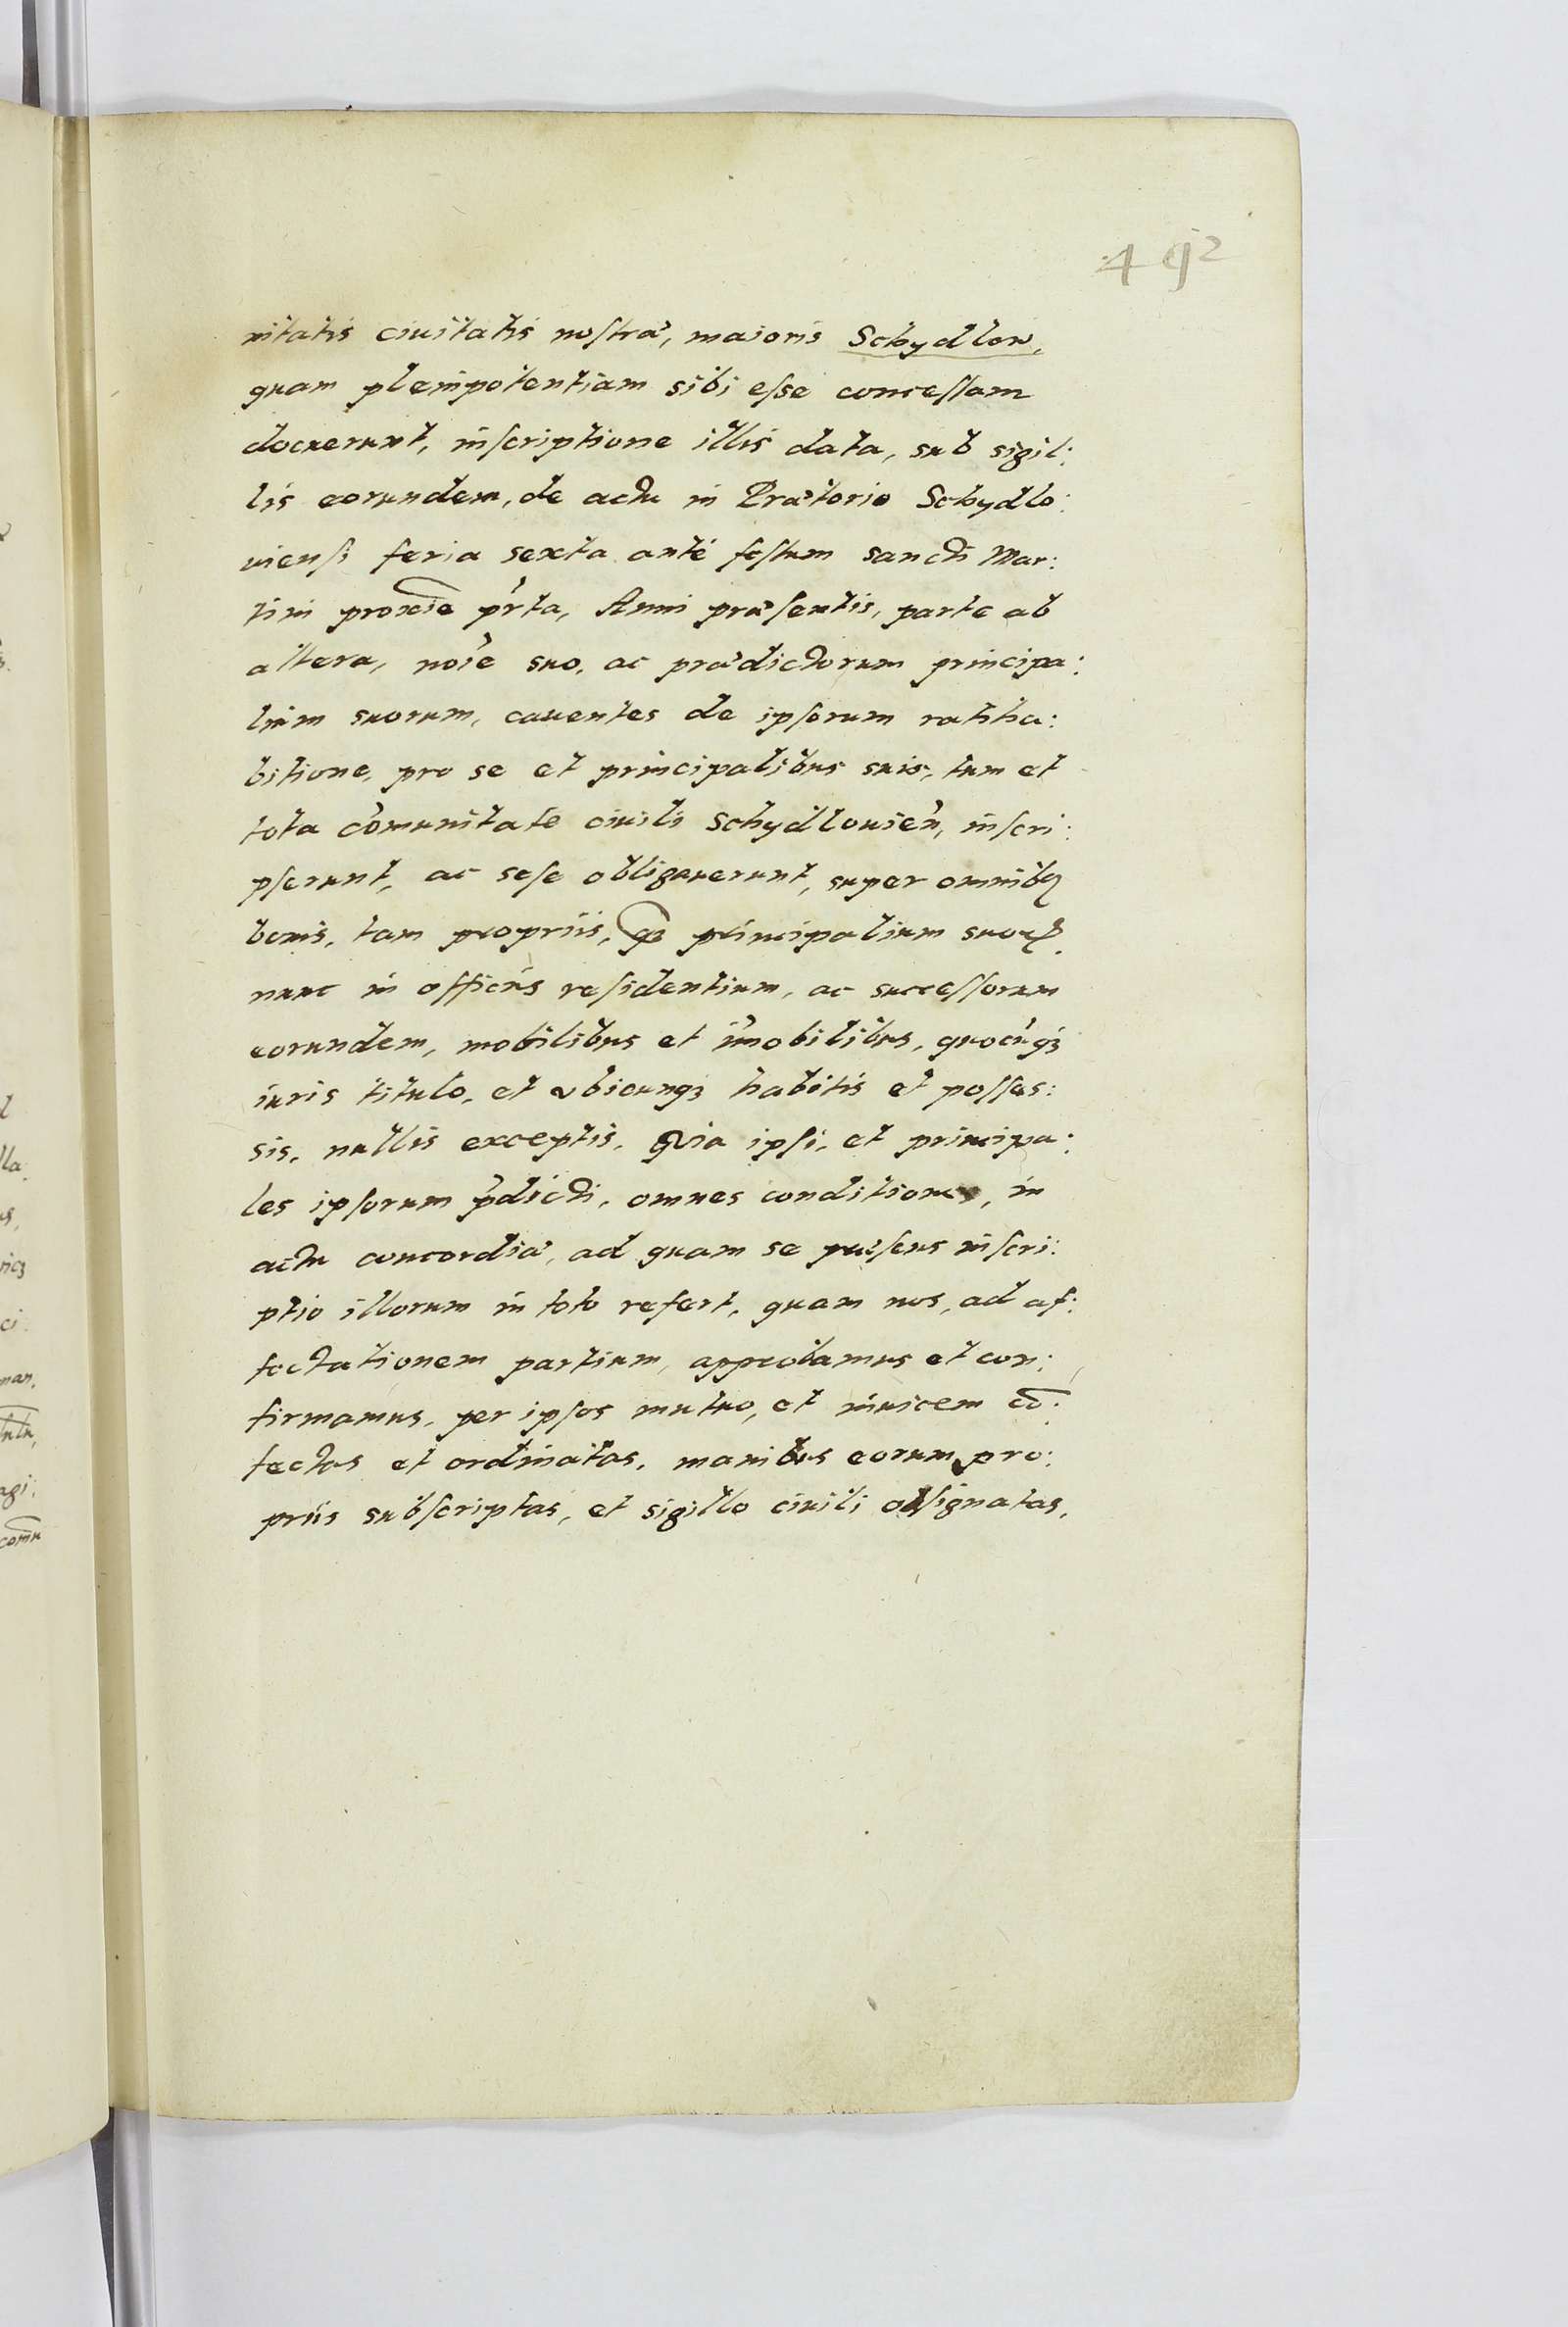 492
nitatis ciuitatis nostræ, maioris Schydlow,
quam plenipotentiam sibi esse concessam
docuerunt, inscriptione illis data, sub sigil:
lis eorundem, de actu in Prætorio Schydlo:
uiensi feria sexta ante festum sancti Mar:
tini proxie prta, Anni præsentis, parte ab
altera, noie suo, ac prædictorum principa:
lium suorum, cauentes de ipsorum ratiha:
bitione, pro se et principalibus suis, tum et
tota comunitate ciuili Schydlouien, inscri:
pserunt, ac sese obligauerunt, super omnibꝫ
bonis, tam propriis, qꝫ principalium suoꝝ
nunc in officiis residentium, ac successorum
eorundem, mobilibus et imobilibus, quocuqꝫ
iuris titulo, et vbicunqꝫ habitis et posses:
sis, nullis exceptis. Quia ipsi, et principa:
les ipsorum pdicti, omnes conditiones, in
actu concordiæ, ad quam se præsens inscri:
ptio illorum in toto refert, quam nos, ad af:
fectationem partium, approbamus et con:
firmamus, per ipsos mutuo, et inuicem co:
fectas et ordinatas, manibus eorum pro:
priis subscriptas, et sigillo ciuili obsignatas,